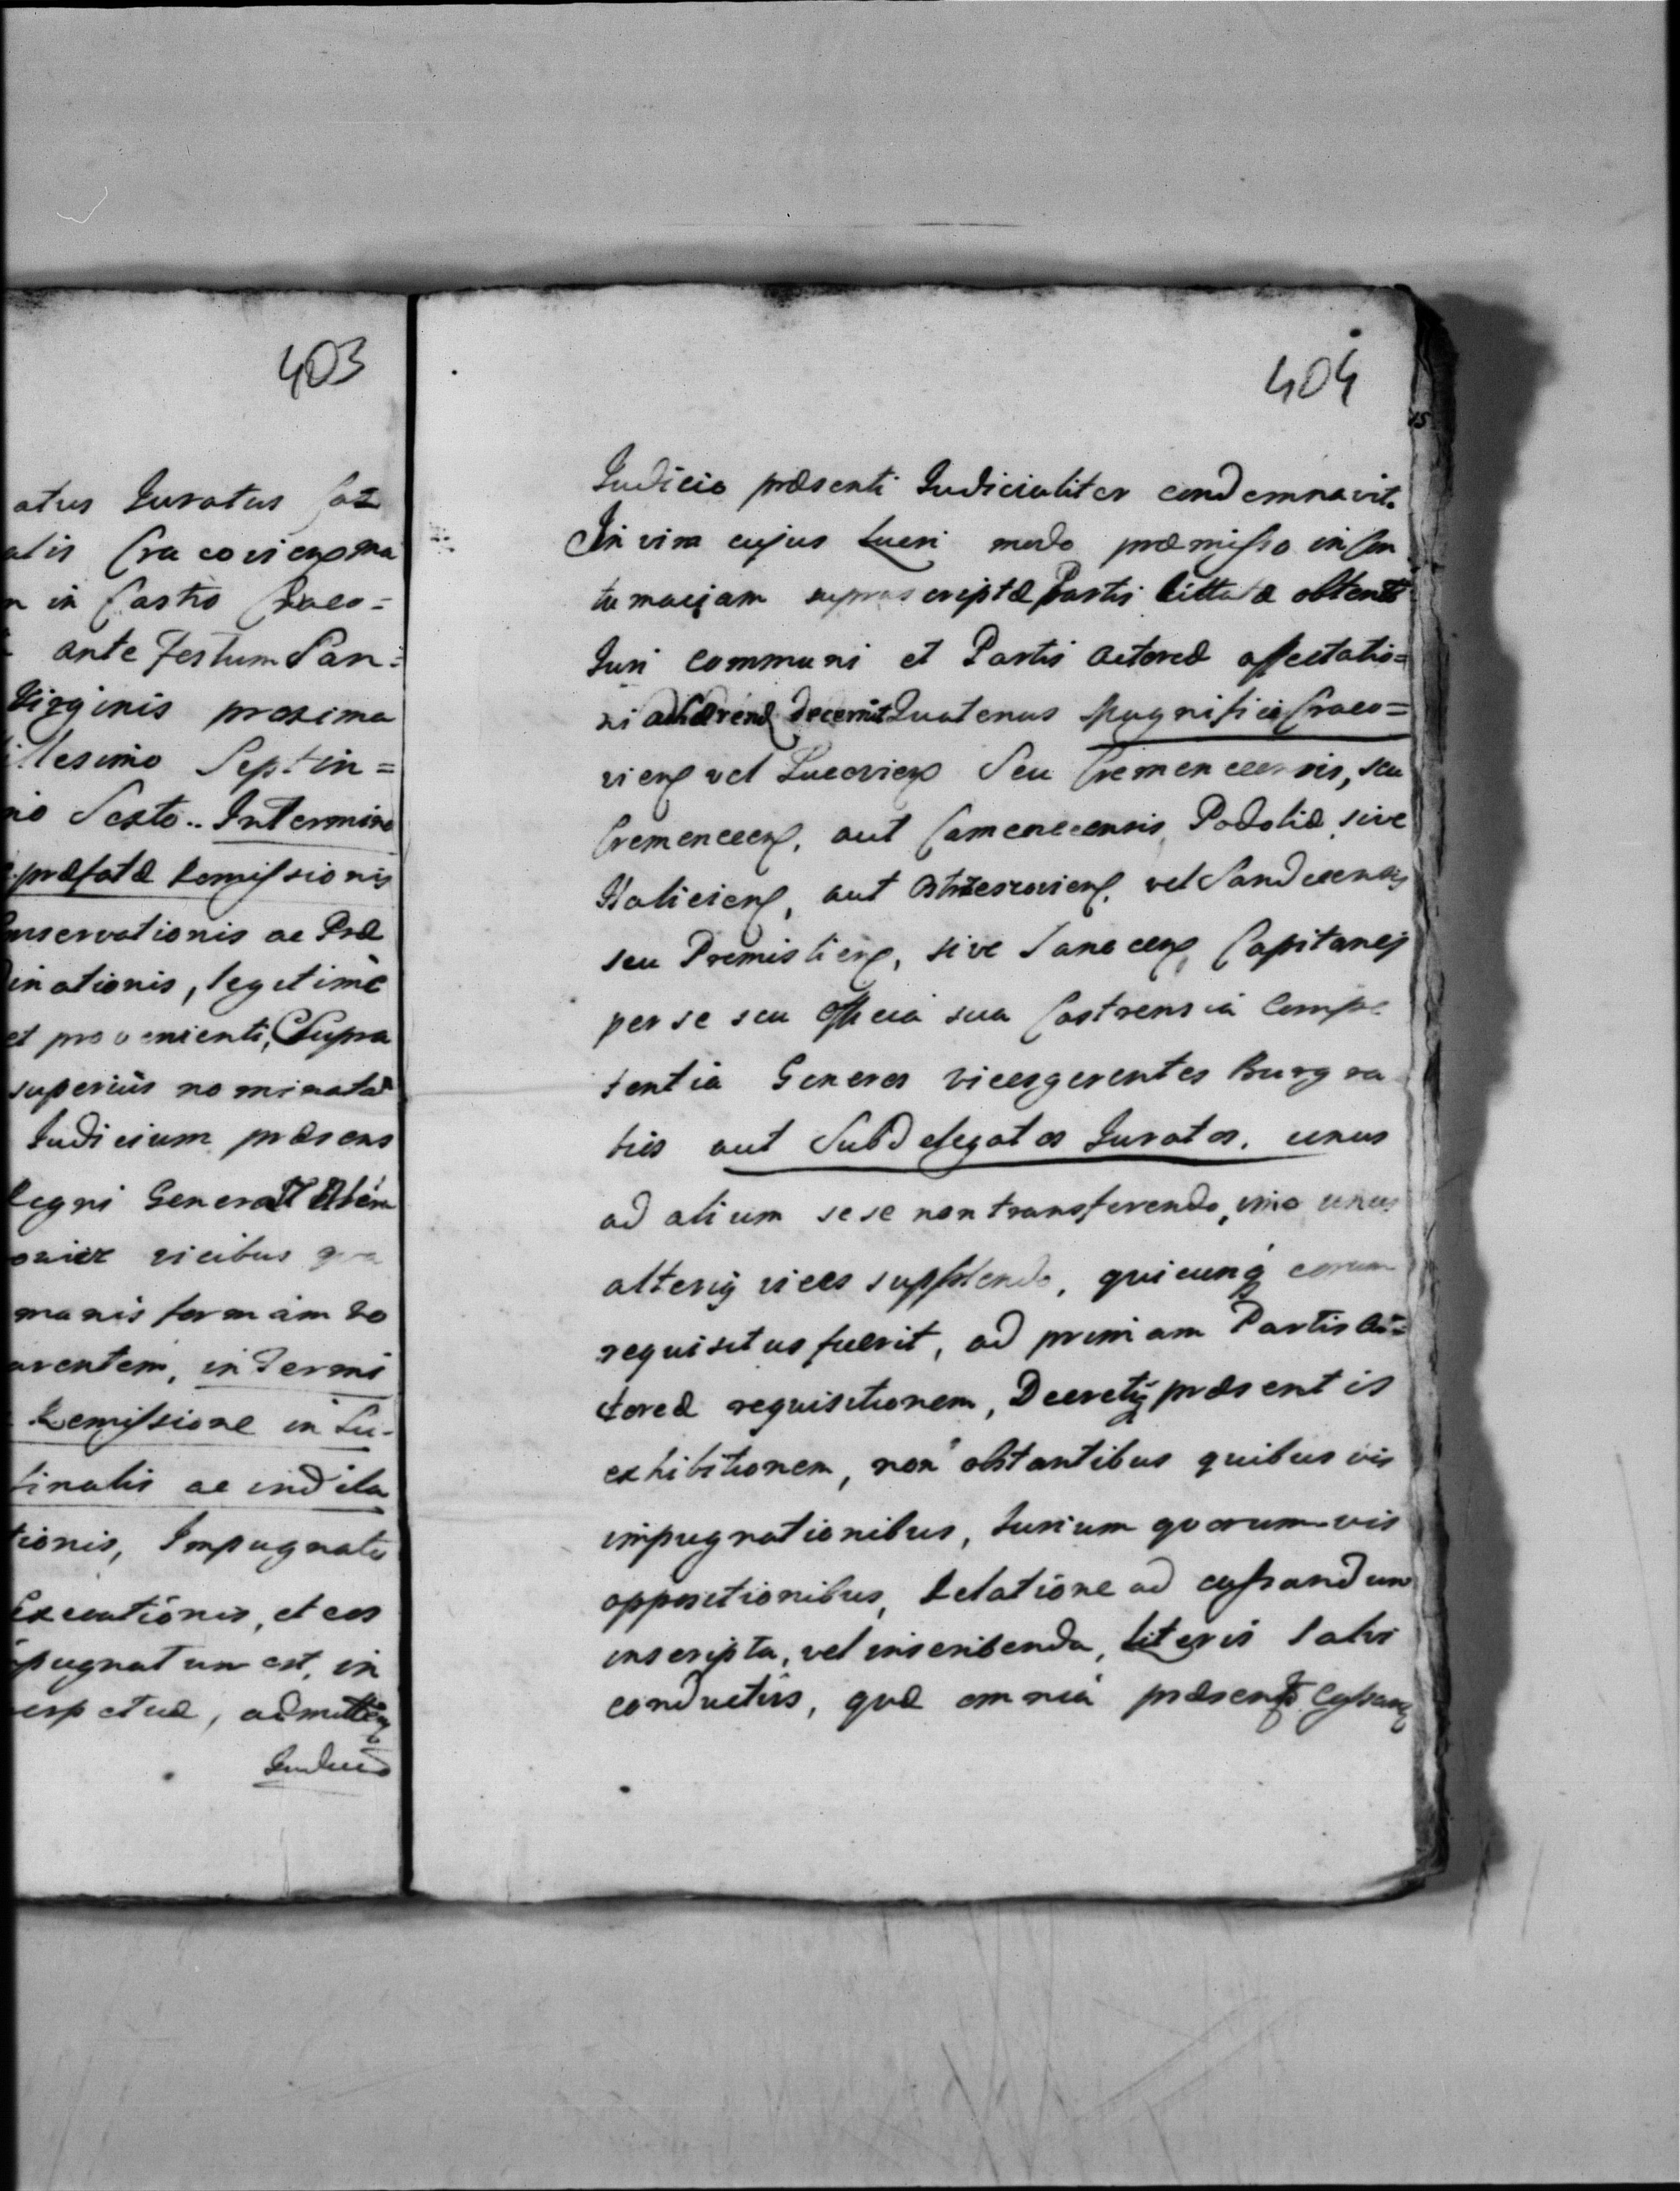 403
atus Juratus
alis Cracoviens
in Castro Craco=
ante Festum San=
Virginis proxima
illesimo Septin=
no Sexto.. In termino
præfatæ Remissionis
nservationis ac Præ
inationis, legitimè
et provenienti, Supra
superius nominatæ
Judicium præsens
Regni General
vicibus
manis formam
arentem, in Termi
Remissione in Lu-
tinalis ac indila
tionis, Impugnatio
Executionis, et eos
pugnatum est, in
erpetuæ, admitten
Judicio
404
Judicio præsenti Judicialiter condemnavit.
In vim cujus Lucri modo præmisso in Con
tumaciam suprascriptæ Partis Cittatæ obtenti
Juri communi et Partis Actoreæ affectatio=
ni adhærend decernit Quatenus Magnificii Craco=
viens vel Lucoviens Seu Cremenecensis, seu
Cremeneens, aut Camenecensis Podoliæ, sive
Haliciens, aut Ostrzeszoviens, vel Sandecensis
seu Premisliens, sive Sanocens, Capitanej
per se seu Officia sua Castrensia Compe
tentia Generos Vicesgerentes Burgra
bios aut Subdelegatos Juratos, unus
ad alium sese non transferendo, imo unus
alterius vices supplendo, quicunq eorum
requisitus fuerit, ad primam Partis Ac=
toreæ requisitionem, Decretiq præsentis
exhibitionem, non obstantibus quibusvis
impugnationibus, Jurium quorumvis
oppositionibus, Relatione ad cassandum
inscripta, vel inscribenda, Literis Salvi
conductûs, quæ omnia præsenti Cassans